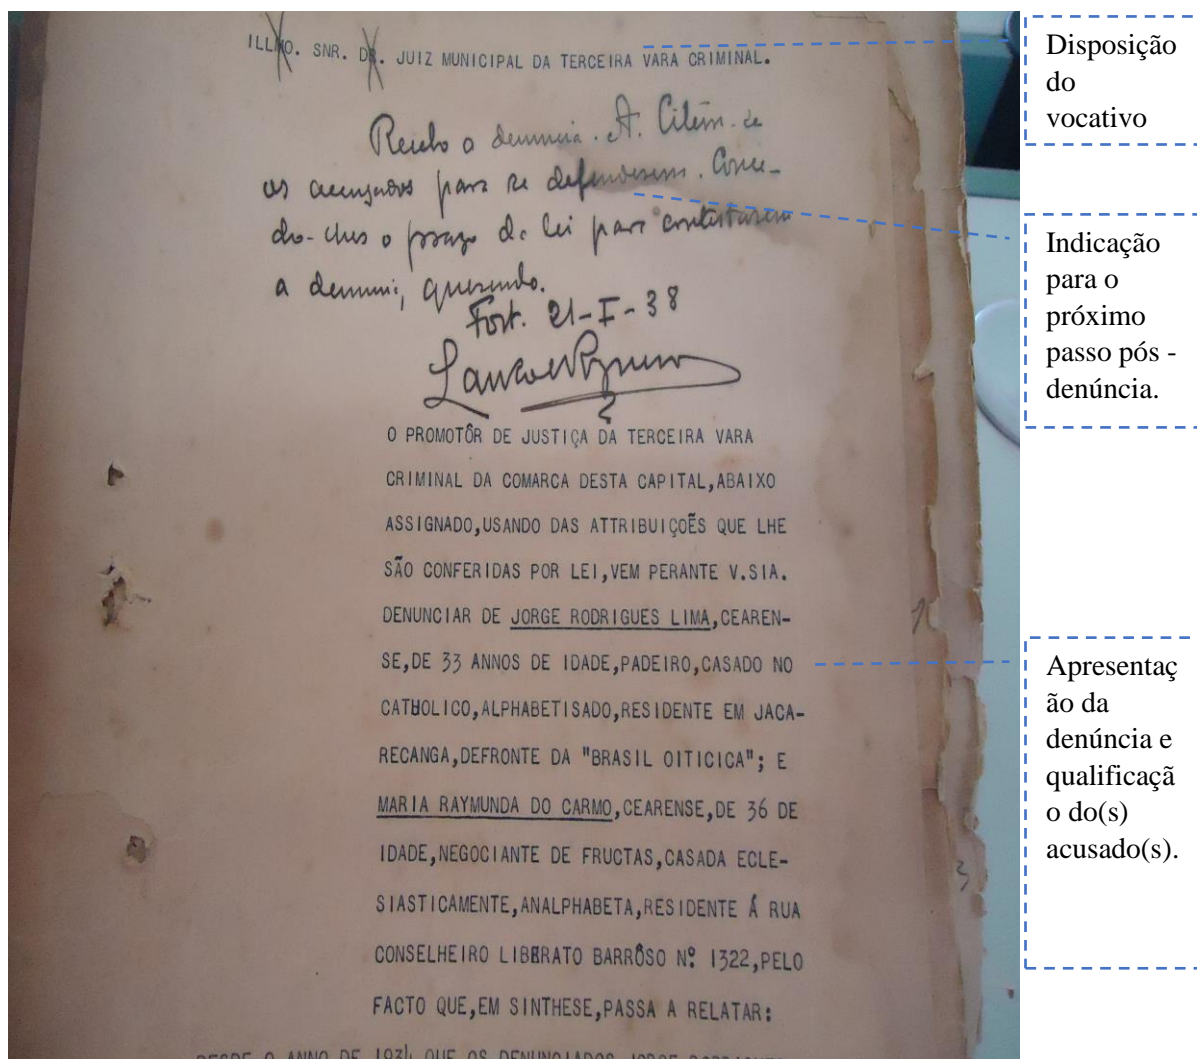 ILLMO. SNR. DR. JUIZ MUNICIPAL DA TERCEIRA VARA CRIMINAL.
Recebo a denuncia. A. Citem-se
os accusados para se defenderem. Conce-
do-lhes o prazo da lei para contestarem
a denuncia, querendo.
Fort. 21-I-38
O PROMOTÔR DE JUSTIÇA DA TERCEIRA VARA
CRIMINAL DA COMARCA DESTA CAPITAL,ABAIXO
ASSIGNADO,USANDO DAS ATTRIBUIÇOÊS QUE LHE
SÃO CONFERIDAS POR LEI,VEM PERANTE V.SIA.
DENUNCIAR DE JORGE RODRIGUES LIMA,CEAREN-
SE,DE 33 ANNOS DE IDADE,PADEIRO,CASADO NO
CATHOLICO,ALPHABETISADO,RESIDENTE EM JACA-
RECANGA,DEFRONTE DA "BRASIL OITICICA"; E
MARIA RAYMUNDA DO CARMO,CEARENSE,DE 36 DE
IDADE,NEGOCIANTE DE FRUCTAS,CASADA ECLE-
SIASTICAMENTE,ANALPHABETA,RESIDENTE Á RUA
CONSELHEIRO LIBERATO BARRÔSO Nº 1322,PELO
FACTO QUE,EM SINTHESE,PASSA A RELATAR:
DESDE O ANNO DE 1934 QUE OS DENUNCIADOS JORGE RODRIGUES
Disposição
do
vocativo
Indicação
para o
próximo
passo pós -
denúncia.
Apresentaç
ão da
denúncia e
qualificaçã
o do(s)
acusado(s).